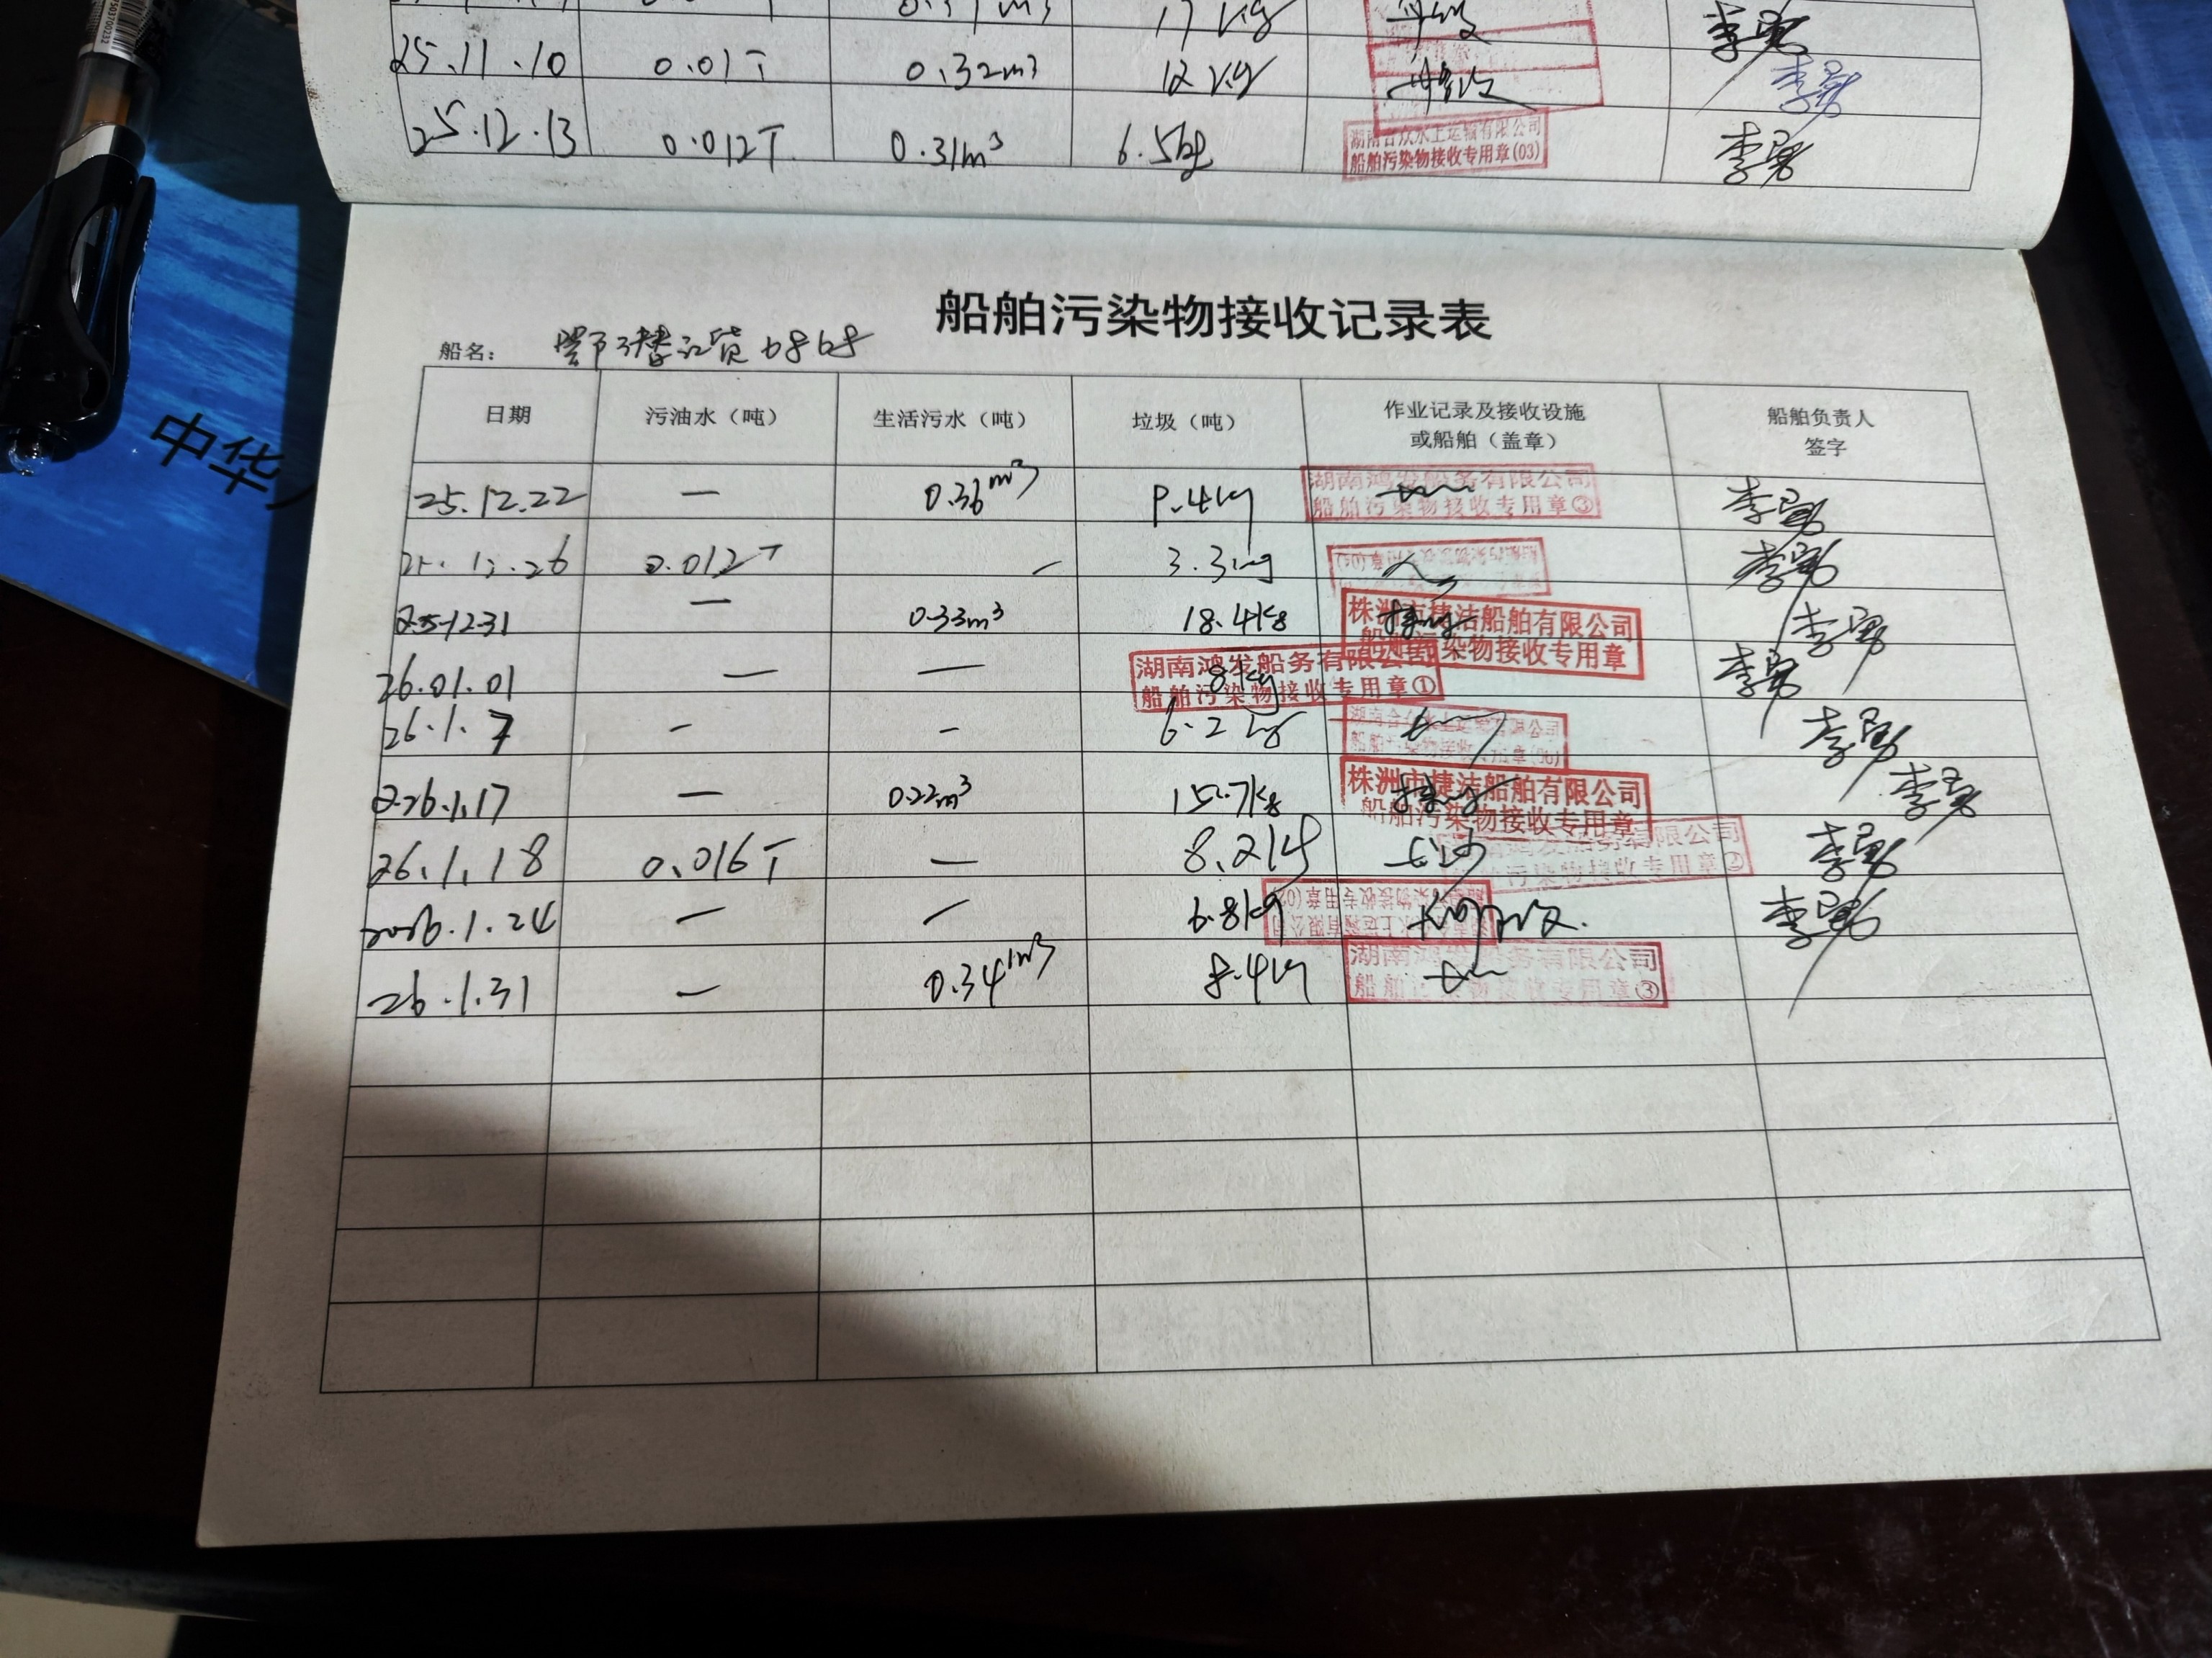 25.11.10 0.01T 0.32m3 12kg
25.12.13 0.012T 0.31m³ 6.5kg 李勇
湖南合众水上运输有限公司
船舶污染物接收专用章(03)
船舶污染物接收记录表
船名：
日期 污油水（吨） 生活污水（吨） 垃圾（吨） 作业记录及接收设施 船舶负责人
或船舶（盖章） 签字
25.12.22 — 0.36m³ 李勇
湖南鸿发船务有限公司
船舶污染物接收专用章③
25.12.26 0.012T — 3.3kg 李勇
25.12.31 — 0.33m³ 18.4kg 李勇
株洲市捷洁船舶有限公司
船舶污染物接收专用章
26.01.01 — — 8kg 李勇
湖南鸿发船务有限公司
船舶污染物接收专用章①
26.1.7 - - 6.2kg 李勇
26.1.17 — 0.22m³ 15.7kg 李勇
株洲市捷洁船舶有限公司
船舶污染物接收专用章
26.1.18 0.016T — 8.2kg 李勇
2026.1.24 — — 6.8kg 李勇
26.1.31 — 0.34m³ 8.4kg
湖南鸿发船务有限公司
船舶污染物接收专用章③
中华